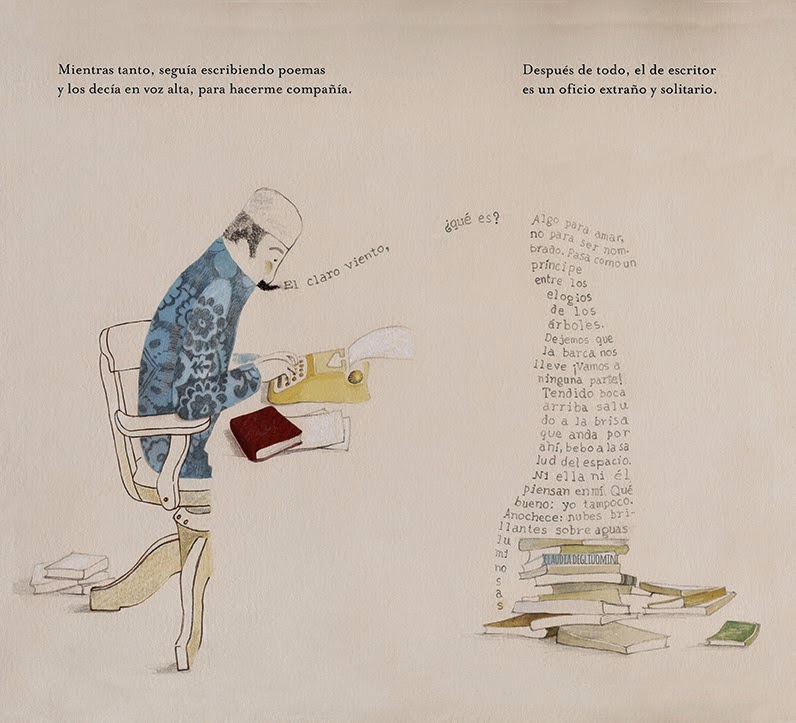 Mientras tanto, seguía escribiendo poemas
y los decía en voz alta, para hacerme compañía.
Después de todo, el de escritor
es un oficio extraño y solitario.
El claro viento,
¿qué es?
Algo para amar,
no para ser nom-
brado. Pasa como un
príncipe
entre los
elogios
de los
árboles.
Dejemos que
la barca nos
lleve ¡Vamos a
ninguna parte!
Tendido boca
arriba salu
do a la brisa
que anda por
ahí, bebo a la sa
lud del espacio.
Ni ella ni él
piensan en mí. Qué
bueno: yo tampoco.
Anochece: nubes bri-
llantes sobre aguas
lu
mi
no
s
a
s
CLAUDIA DEGLIUOMINI